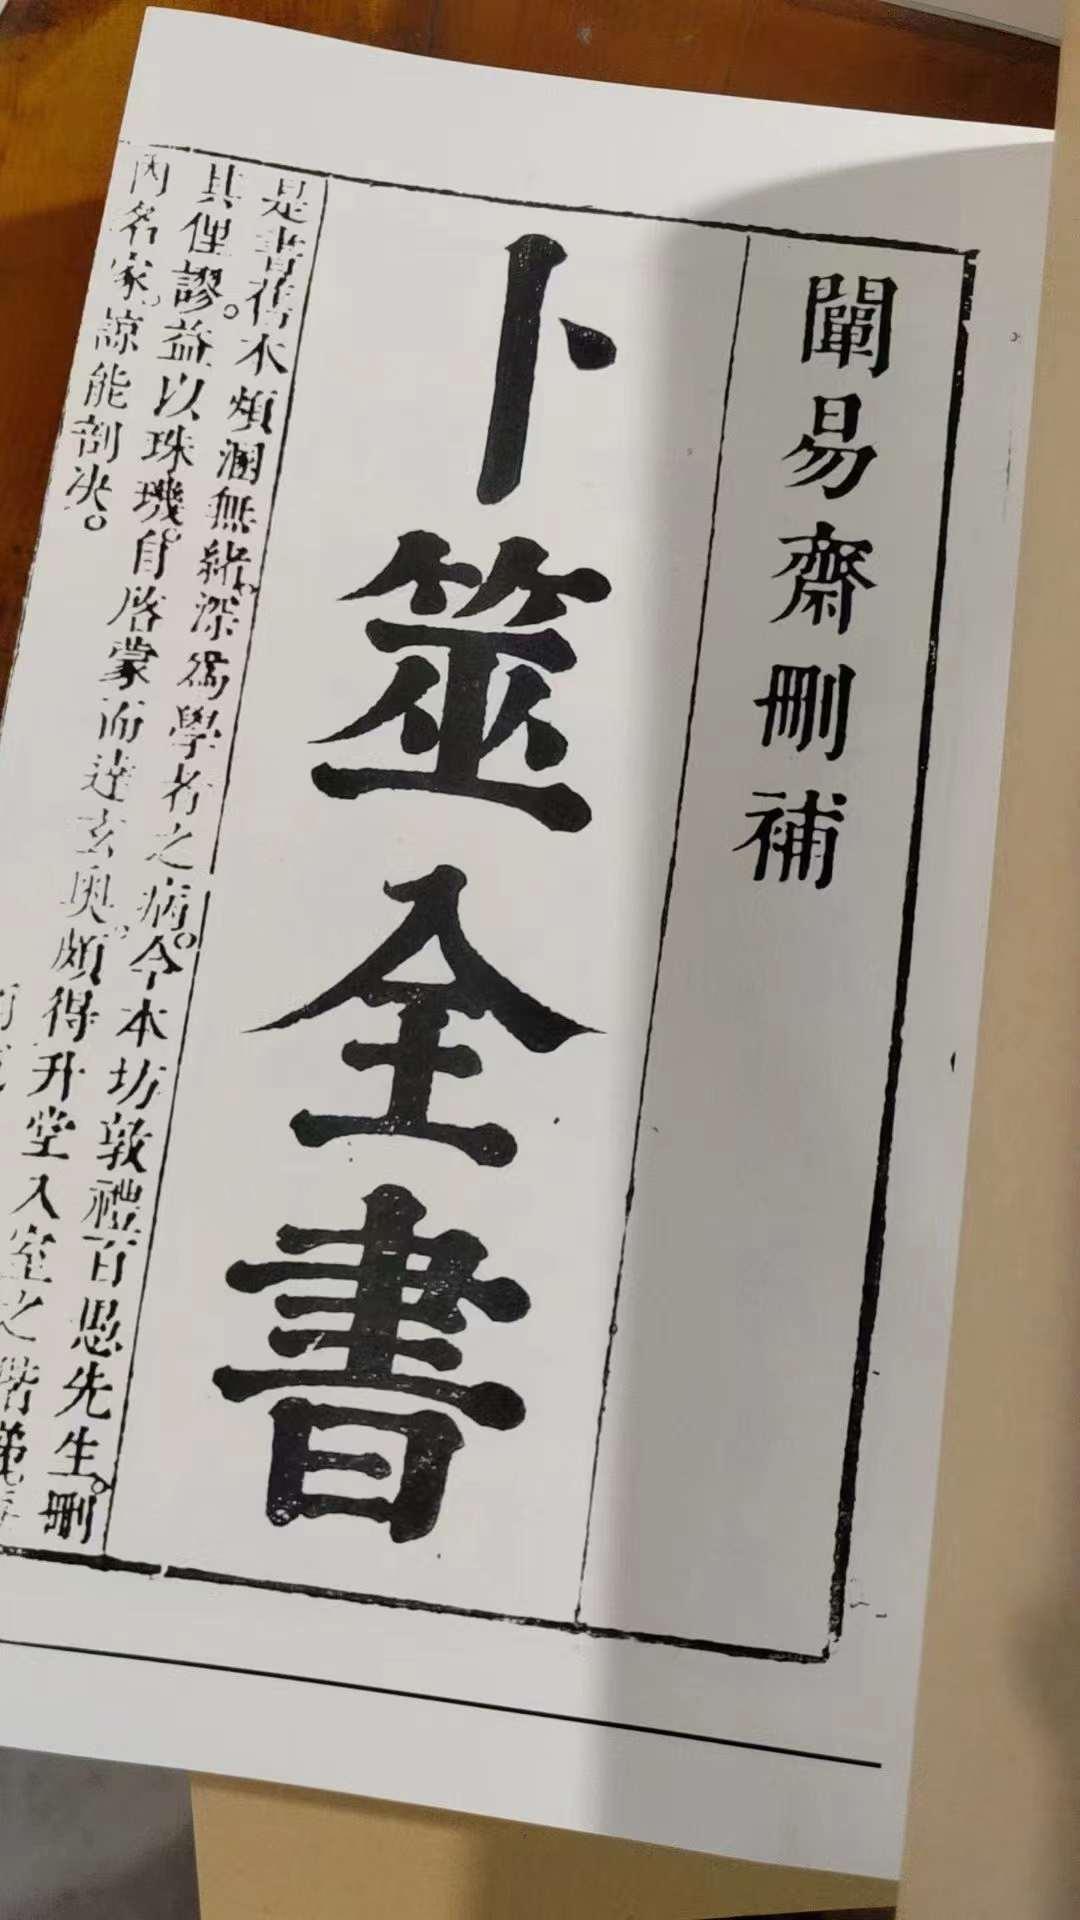 闡易齋刪補
卜筮全書
是書舊本頗溷無緒。深爲學者之病。今本坊敦禮百思先生。刪
其俚謬。益以珠璣。自啓蒙而達玄奧。頗得升堂入室之階梯
內名家。諒能剖决。